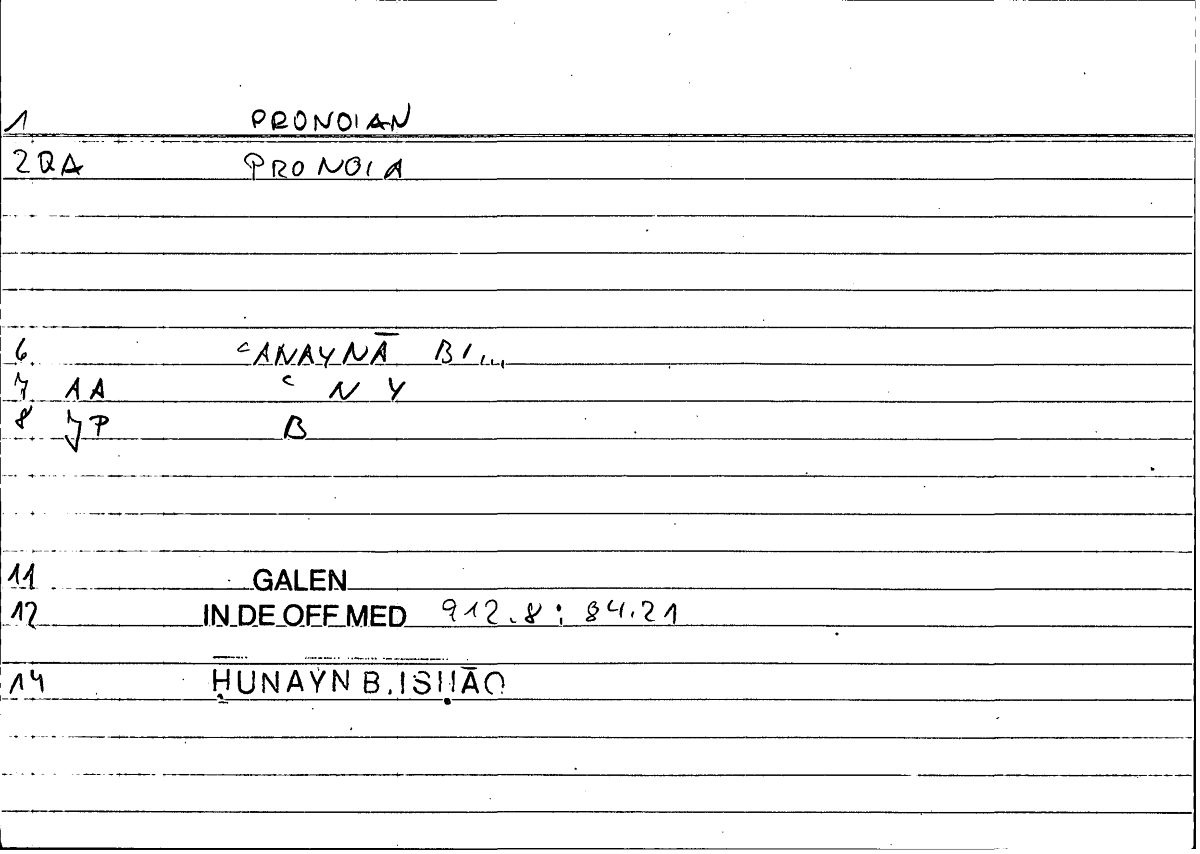 1 PRONOIAN
2QA PRONOIA
6 ʿANAYNĀ BI...
7 AA ʿ N Y
8 JP B
11 GALEN
12 IN DE OFF MED 912.8 : 84.21
14 ḤUNAYN B. ISḤĀQ